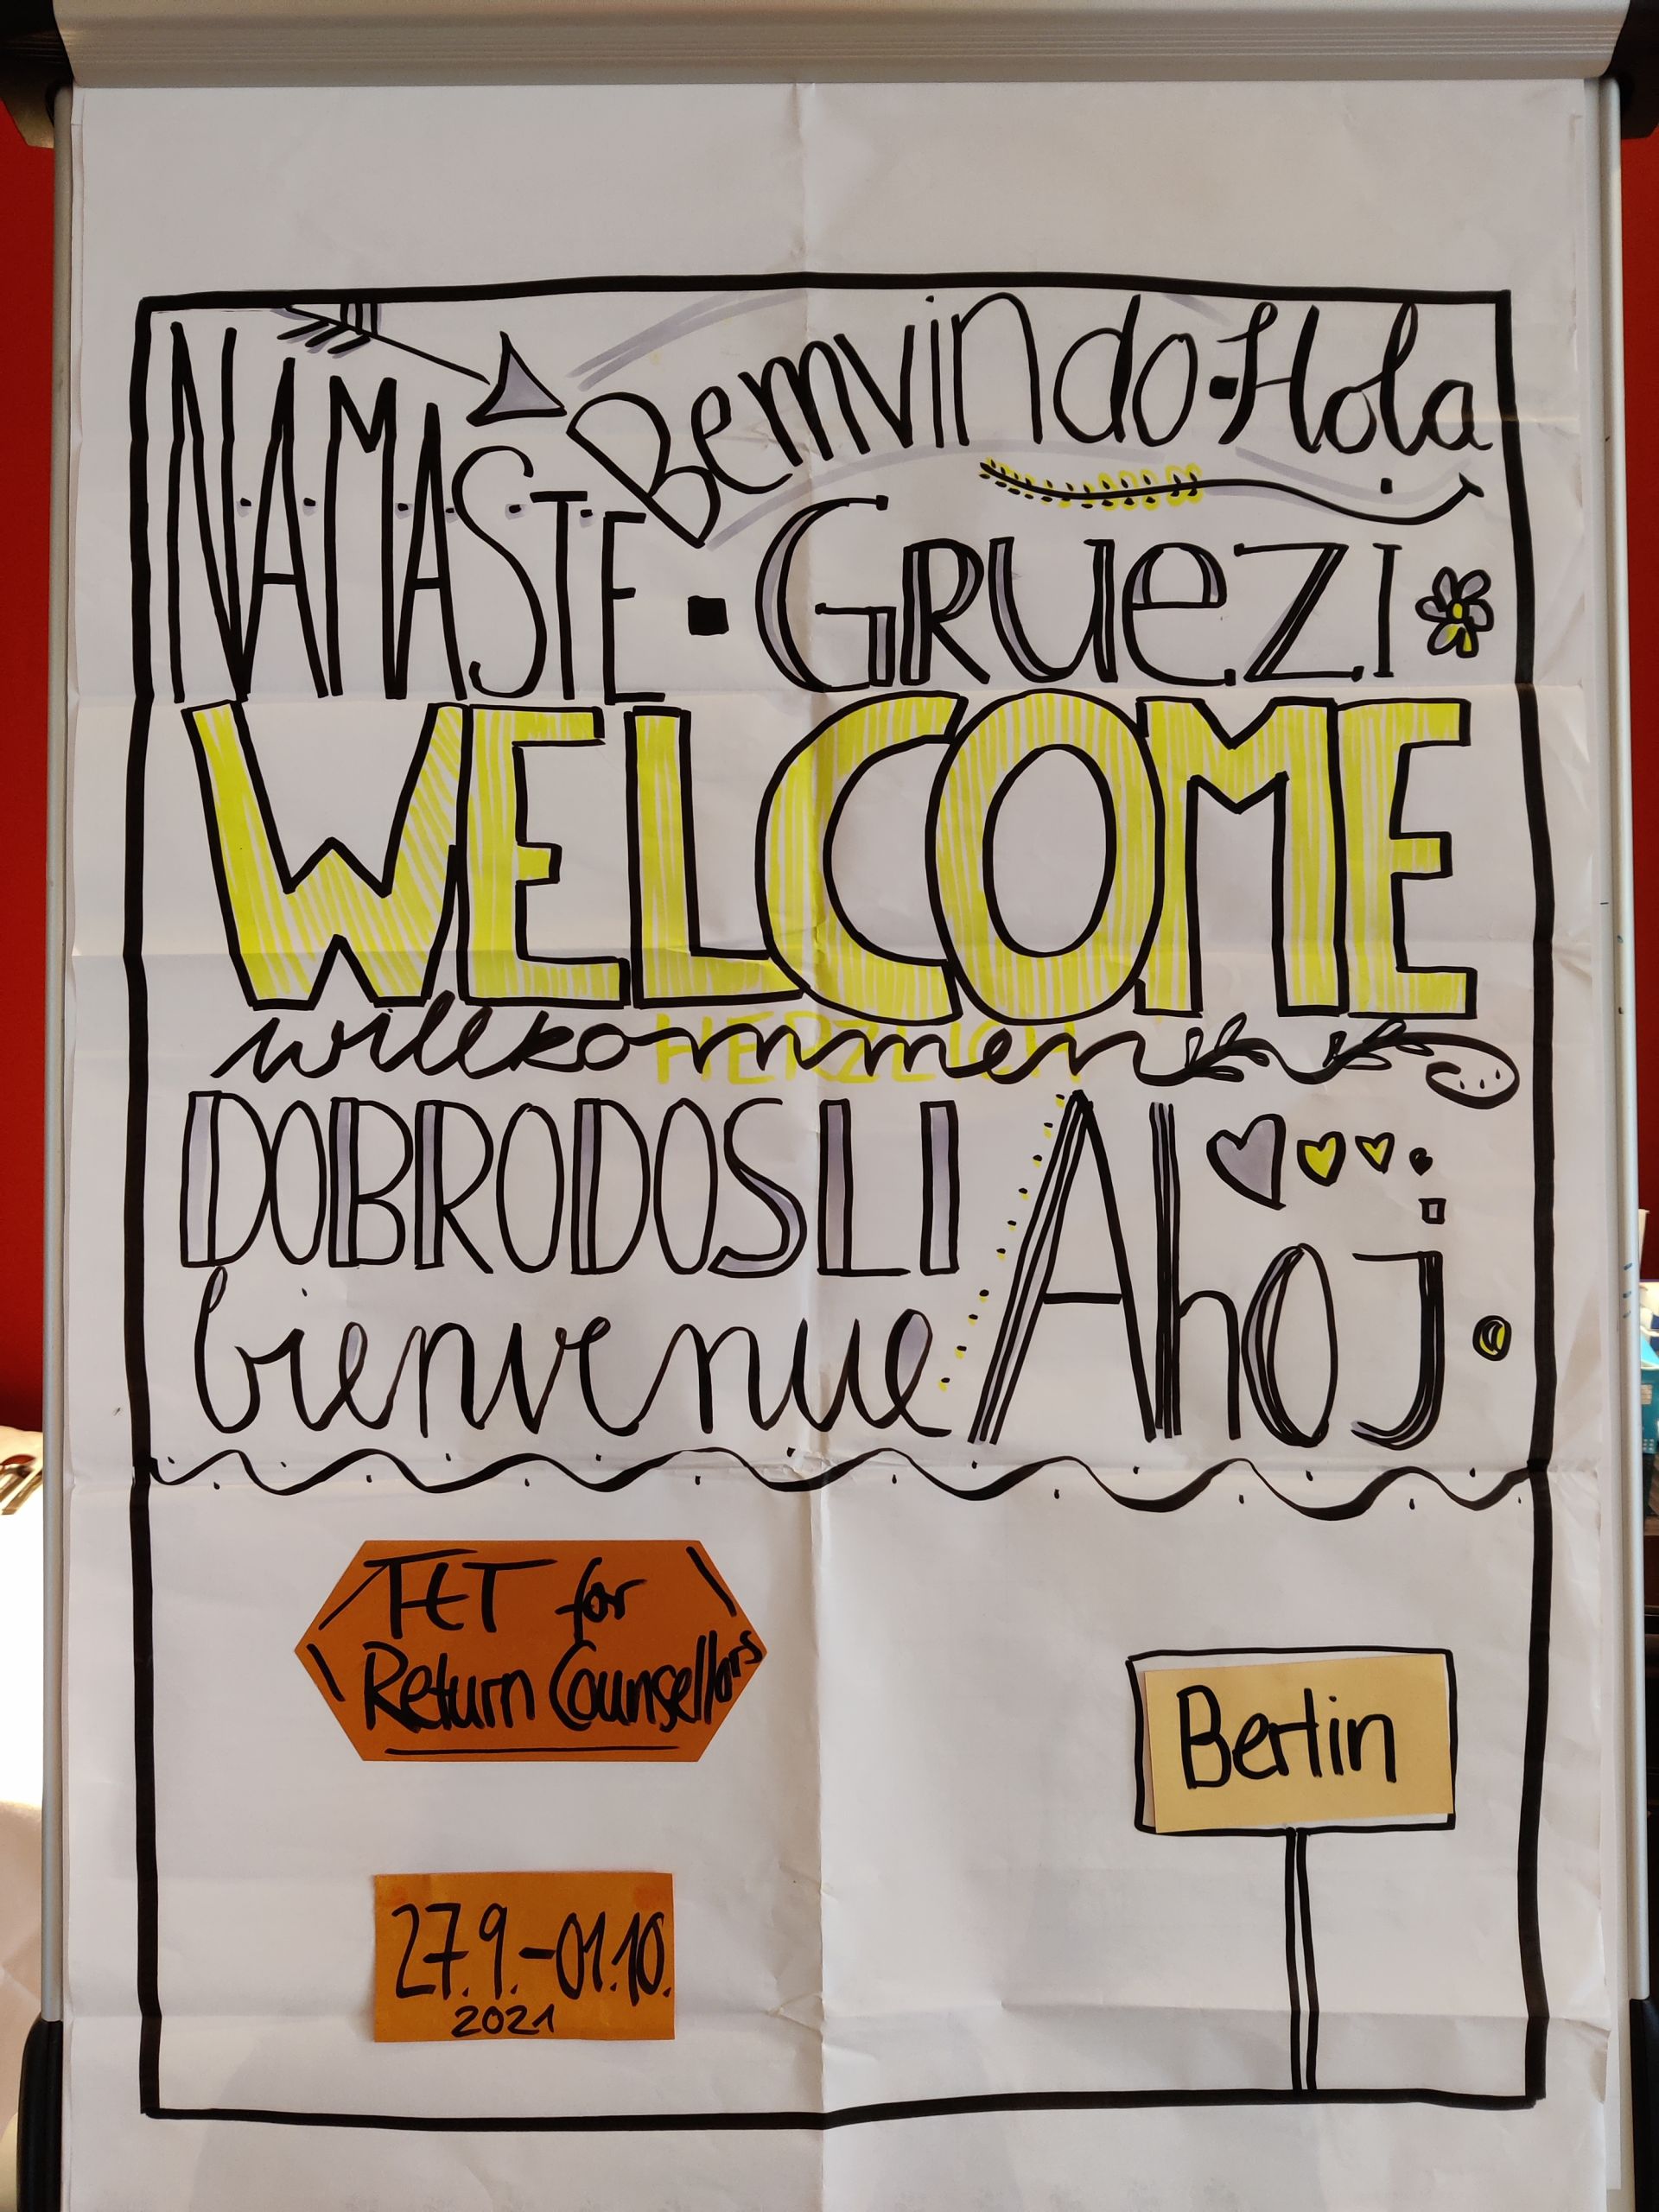 NAMASTE · Bemvindo · Hola
GRUeZI
WELCOME
HERZLICH
willkommen
DOBRODOSLI
Ahoj
bienvenue
TCT for
Return Counsellors
Berlin
27.9.-01.10.
2021